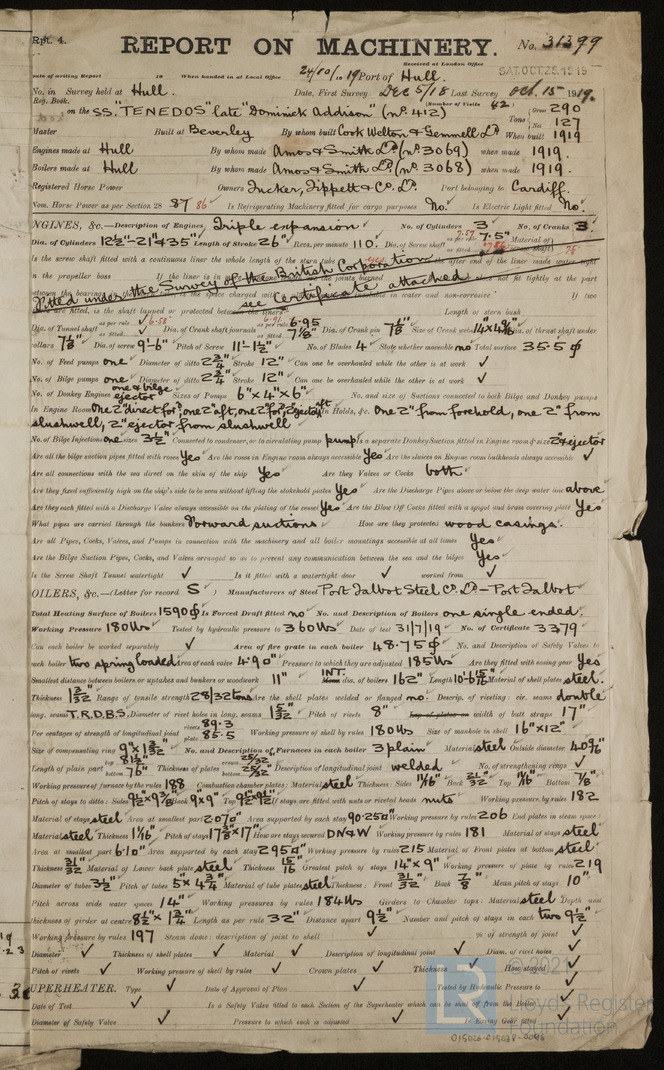 Rpt. 4.
REPORT ON MACHINERY. No. 31399
Received at London Office
Date of writing Report 19 When handed in at Local Office 24/10/1919 Port of Hull. SAT. OCT. 25. 1919
No. in Survey held at Hull. Date, First Survey Dec 5/18 Last Survey Oct. 15 1919.
Reg. Book. (Number of Visits 42)
on the SS. "TENEDOS" late "Dominick Addison" (No. 412) Tons Gross 290 Net 127
Master Built at Beverley By whom built Cook Welton & Gemmell Ld When built 1919
Engines made at Hull By whom made Amos & Smith Ld (No. 3069) when made 1919.
Boilers made at Hull By whom made Amos & Smith Ld (No. 3068) when made 1919.
Registered Horse Power Owners Tucker, Tippett & Co. Ld. Port belonging to Cardiff.
Nom. Horse Power as per Section 28 87 86 Is Refrigerating Machinery fitted for cargo purposes No. Is Electric Light fitted No.
NGINES, &c.—Description of Engines Triple expansion No. of Cylinders 3 No. of Cranks 3.
Dia. of Cylinders 12½"-21"&35" Length of Stroke 26" Revs. per minute 110. Dia. of Screw shaft as per rule 7.57 as fitted 7.5" Material of screw shaft
Is the screw shaft fitted with a continuous liner the whole length of the stern tube yes the after end of the liner made water tight
in the propeller boss If the liner is in
Fitted under the Survey of the British Corporation
see Certificate attached
If two liners are fitted, is the shaft lapped or protected between the liners Length of stern bush
Dia. of Tunnel shaft as per rule 6.58 as fitted Dia. of Crank shaft journals as per rule 6.91 6.95 as fitted 7⅛" Dia. of Crank pin 7⅛" Size of Crank webs Dia. of thrust shaft under
collars 7⅛" Dia. of screw 9'-6" Pitch of Screw 11'-1½" No. of Blades 4 State whether moveable no Total surface 35.5 ф
No. of Feed pumps one Diameter of ditto 2¾" Stroke 12" Can one be overhauled while the other is at work ✓
No. of Bilge pumps one Diameter of ditto 2¾" Stroke 12" Can one be overhauled while the other is at work ✓
No. of Donkey Engines one & bilge ejector Sizes of Pumps 6"x4"x6" No. and size of Suctions connected to both Bilge and Donkey pumps
In Engine Room One 2" direct for'd, one 2" aft, one 2" for'd, 2" ejector aft In Holds, &c. One 2" from forehold, one 2" from
slushwell, 2" ejector from slushwell
No. of Bilge Injections one sizes 3½" Connected to condenser, or to circulating pump pump Is a separate Donkey Suction fitted in Engine room & size 2" ejector
Are all the bilge suction pipes fitted with roses Yes Are the roses in Engine room always accessible Yes Are the sluices on Engine room bulkheads always accessible ✓
Are all connections with the sea direct on the skin of the ship Yes Are they Valves or Cocks both
Are they fixed sufficiently high on the ship's side to be seen without lifting the stokehold plates Yes Are the Discharge Pipes above or below the deep water line above
Are they each fitted with a Discharge Valve always accessible on the plating of the vessel Yes Are the Blow Off Cocks fitted with a spigot and brass covering plate Yes
What pipes are carried through the bunkers Forward suctions How are they protected wood casings.
Are all Pipes, Cocks, Valves, and Pumps in connection with the machinery and all boiler mountings accessible at all times Yes
Are the Bilge Suction Pipes, Cocks, and Valves arranged so as to prevent any communication between the sea and the bilges Yes
Is the Screw Shaft Tunnel watertight ✓ Is it fitted with a watertight door ✓ worked from ✓
OILERS, &c.—(Letter for record S) Manufacturers of Steel Port Talbot Steel Co. Ld – Port Talbot
Total Heating Surface of Boilers 1590 ф Is Forced Draft fitted no No. and Description of Boilers one single ended.
Working Pressure 180 lbs Tested by hydraulic pressure to 360 lbs Date of test 31/7/19 No. of Certificate 3379
Can each boiler be worked separately ✓ Area of fire grate in each boiler 48.75 ф No. and Description of Safety Valves to
each boiler two spring loaded Area of each valve 4.90" Pressure to which they are adjusted 185 lbs Are they fitted with easing gear Yes
Smallest distance between boilers or uptakes and bunkers or woodwork 11" INT. dia. of boilers 162" Length 10'-6 15/32" Material of shell plates steel.
Thickness 1 3/32" Range of tensile strength 28/32 tons Are the shell plates welded or flanged no. Descrip. of riveting: cir. seams double
long. seams T.R.D.B.S. Diameter of rivet holes in long. seams 1 5/32" Pitch of rivets 8" Lap of plates or width of butt straps 17"
Per centages of strength of longitudinal joint rivets 89.3 plate 85.5 Working pressure of shell by rules 180 lbs Size of manhole in shell 16"x12"
Size of compensating ring 9"x1 3/32" No. and Description of Furnaces in each boiler 3 plain Material steel Outside diameter
Length of plain part top 81½" bottom 76" Thickness of plates crown 25/32" bottom 25/32" Description of longitudinal joint welded No. of strengthening rings ✓
Working pressure of furnace by the rules 188 Combustion chamber plates: Material steel Thickness: Sides 11/16" Back 21/32" Top 11/16" Bottom 7/8"
Pitch of stays to ditto: Sides Back 9"x9" Top 9½"x9½" If stays are fitted with nuts or riveted heads nuts Working pressure by rules 182
Material of stays steel Area at smallest part 2.07" Area supported by each stay 90.25" Working pressure by rules 206 End plates in steam space:
Material steel Thickness 1 1/16" Pitch of stays 17⅜"x17" How are stays secured DN&W Working pressure by rules 181 Material of stays steel
Area at smallest part 6.10" Area supported by each stay 295" Working pressure by rules 215 Material of Front plates at bottom steel
Thickness 31/32" Material of Lower back plate steel Thickness 15/16" Greatest pitch of stays 14"x9" Working pressure of plate by rules 219
Diameter of tubes 3½" Pitch of tubes 5"x4¾" Material of tube plates steel Thickness: Front 31/32" Back 7/8" Mean pitch of stays 10"
Pitch across wide water spaces 14" Working pressures by rules 184 lbs Girders to Chamber tops: Material steel Depth and
thickness of girder at centre 8½"x1¾" Length as per rule 32" Distance apart 9½" Number and pitch of stays in each two 9½"
Working pressure by rules 197 Steam dome: description of joint to shell ✓ % of strength of joint ✓
Diameter ✓ Thickness of shell plates ✓ Material ✓ Description of longitudinal joint ✓ Diam. of rivet holes ✓
Pitch of rivets ✓ Working pressure of shell by rules ✓ Crown plates ✓ Thickness ✓ How stayed ✓
UPERHEATER. Type ✓ Date of Approval of Plan ✓ Tested by Hydraulic Pressure to ✓
Date of Test ✓ Is a Safety Valve fitted to each Section of the Superheater which can be shut off from the Boiler ✓
Diameter of Safety Valve ✓ Pressure to which each is adjusted ✓ Is Easing Gear fitted ✓
© 2021
Lloyd's Register
Foundation